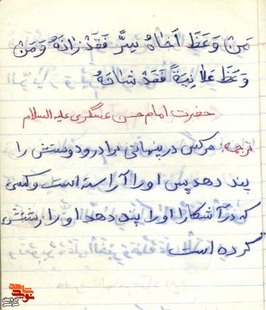 مَنْ وَعَظَ أَخاهُ سِرًّ فَقَدْ زانَهُ وَمَنْ
وَعَظَ عَلانِيَةً فَقَدْ شانَهُ
حضرت امام حسن عسگری علیه السلام
ترجمه: هرکس در پنهانی برادر و دوستش را
پند دهد پس او را آراسته است و کسی
که در آشکارا او را پند دهد او را زشتش
کرده است